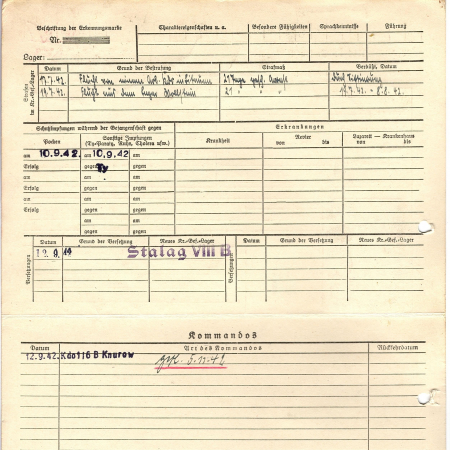 Beschriftung der Erkennungsmarke
Nr.
Lager:
Charaktereigenschaften u. a.
Besondere Fähigkeiten
Sprachkenntnisse
Führung
Strafen im Kr.-Gef.-Lager
Datum
Grund der Bestrafung
Strafmaß
Verbüßt, Datum
17.7.42. Flucht von einem
19.7.42. Flucht aus dem Lager
21 Tage
21 " " "
Schutzimpfungen während der Gefangenschaft gegen
Erkrankungen
Pocken
Sonstige Impfungen
(Ty-Paraty, Ruhr, Cholera usw.)
Krankheit
Revier
von bis
Lazarett - Krankenhaus
von bis
am 10.9.42. am 10.9.42
Erfolg gegen Ty
am am
Erfolg gegen
am am
Erfolg gegen
am
gegen
Versetzungen
Datum
Grund der Versetzung
Neues Kr.-Gef.-Lager
Versetzungen
Datum
Grund der Versetzung
Neues Kr.-Gef.-Lager
Stalag VIII B.
Kommandos
Datum
Art des Kommandos
Rückkehrdatum
12.9.42. Kdo116 B Knurow
5.11.42